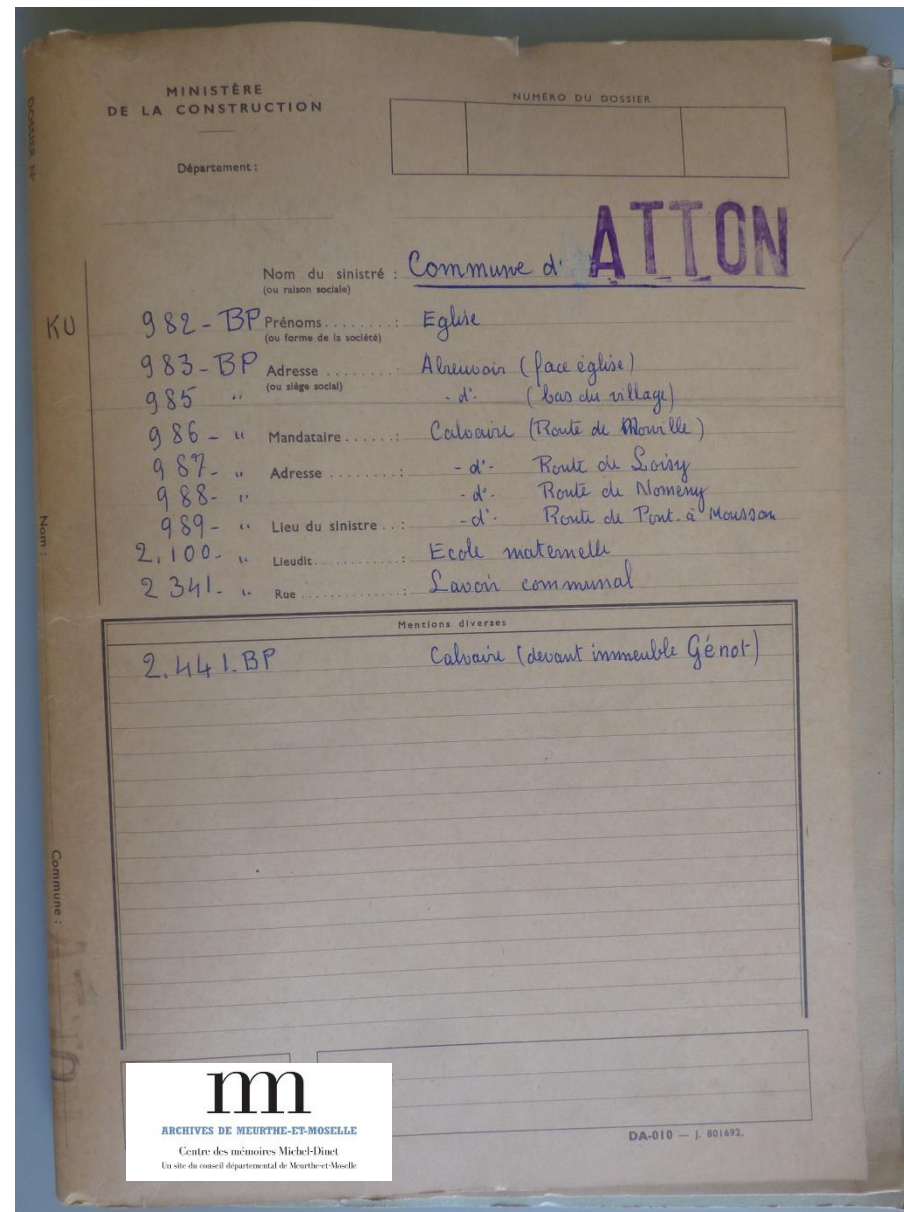 MINISTÈRE
DE LA CONSTRUCTION
NUMÉRO DU DOSSIER
Département :
DOSSIER N°
ATTON
Nom du sinistré : Commune d'
(ou raison sociale)
KU
982 - BP Prénoms ........ : Eglise
(ou forme de la société)
983 - BP Adresse ........ : Abreuvoir (face église)
(ou siège social)
985 " - d° - (bas du village)
986 - " Mandataire ...... : Calvaire (Route de )
987 - " Adresse ........ : - d° - Route de Loisy
988 - " - d° - Route de Nomeny
989 - " Lieu du sinistre .. : - d° - Route de Pont-à Mousson
2.100 - " Lieudit ............ : Ecole maternelle
2341 - " Rue ............. : Lavoir communal
Nom :
Mentions diverses
2.441.BP Calvaire (devant immeuble Génot)
Commune :
DA-010 — J. 801692.
rm
ARCHIVES DE MEURTHE-ET-MOSELLE
Centre des mémoires Michel-Dinet
Un site du conseil départemental de Meurthe-et-Moselle